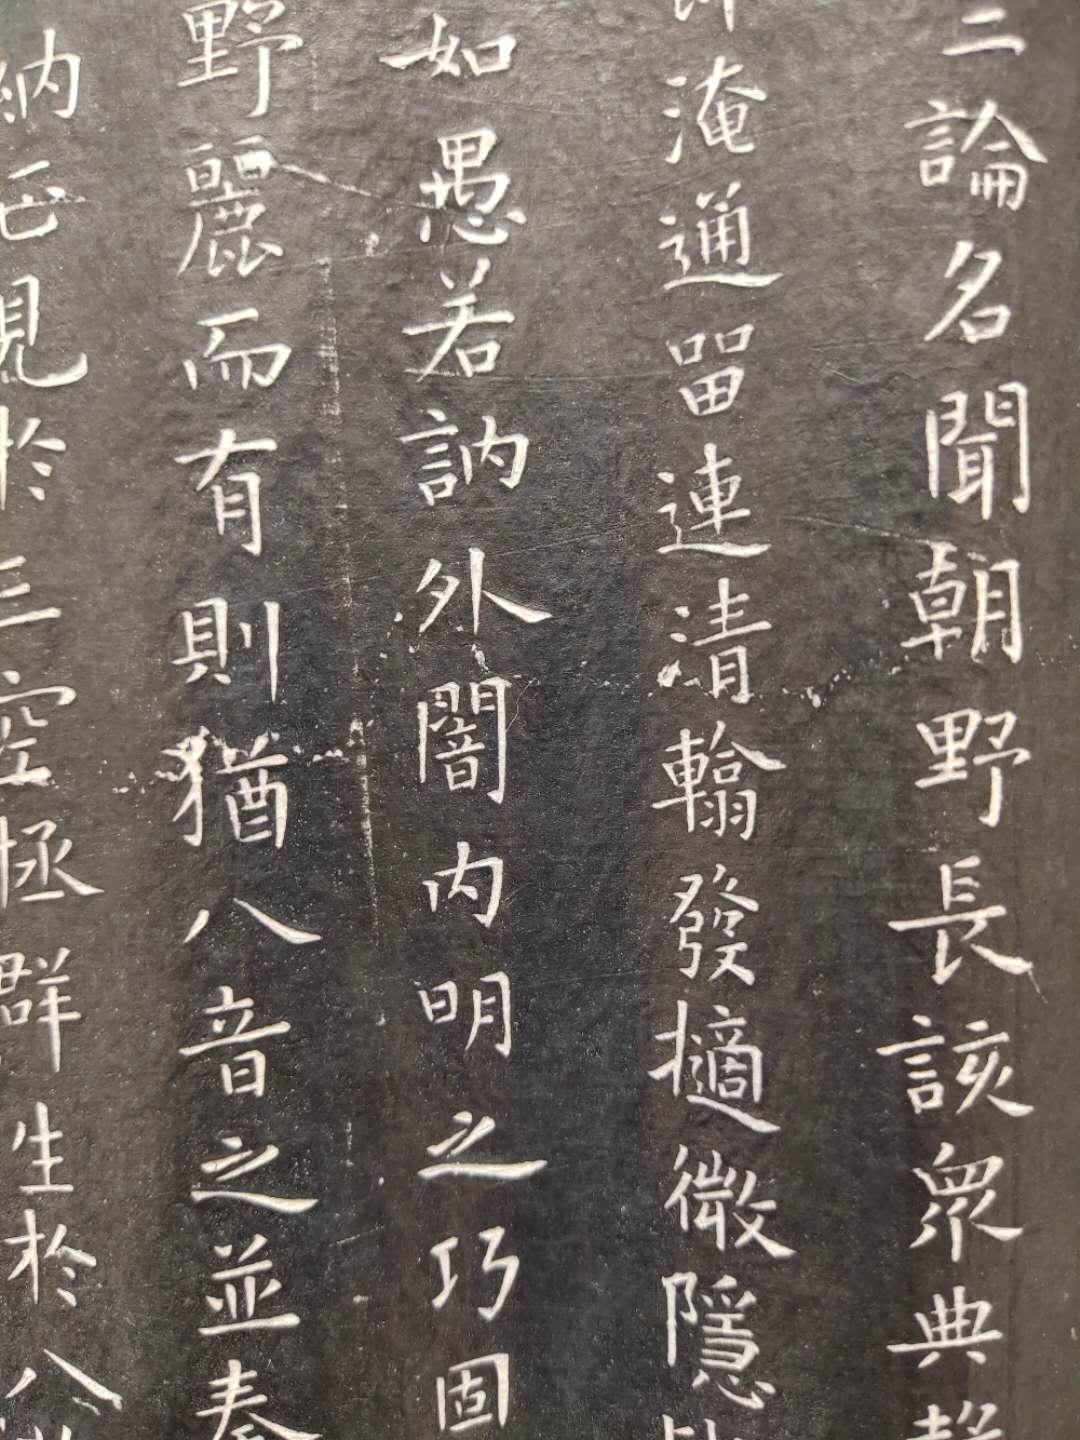 二論名聞朝野長該眾典聲
淹通畱連清翰發擿微隱
如愚若訥外闇內明之巧固
野麗而有則猶八音之並奏
納正見於三空拯群生於八